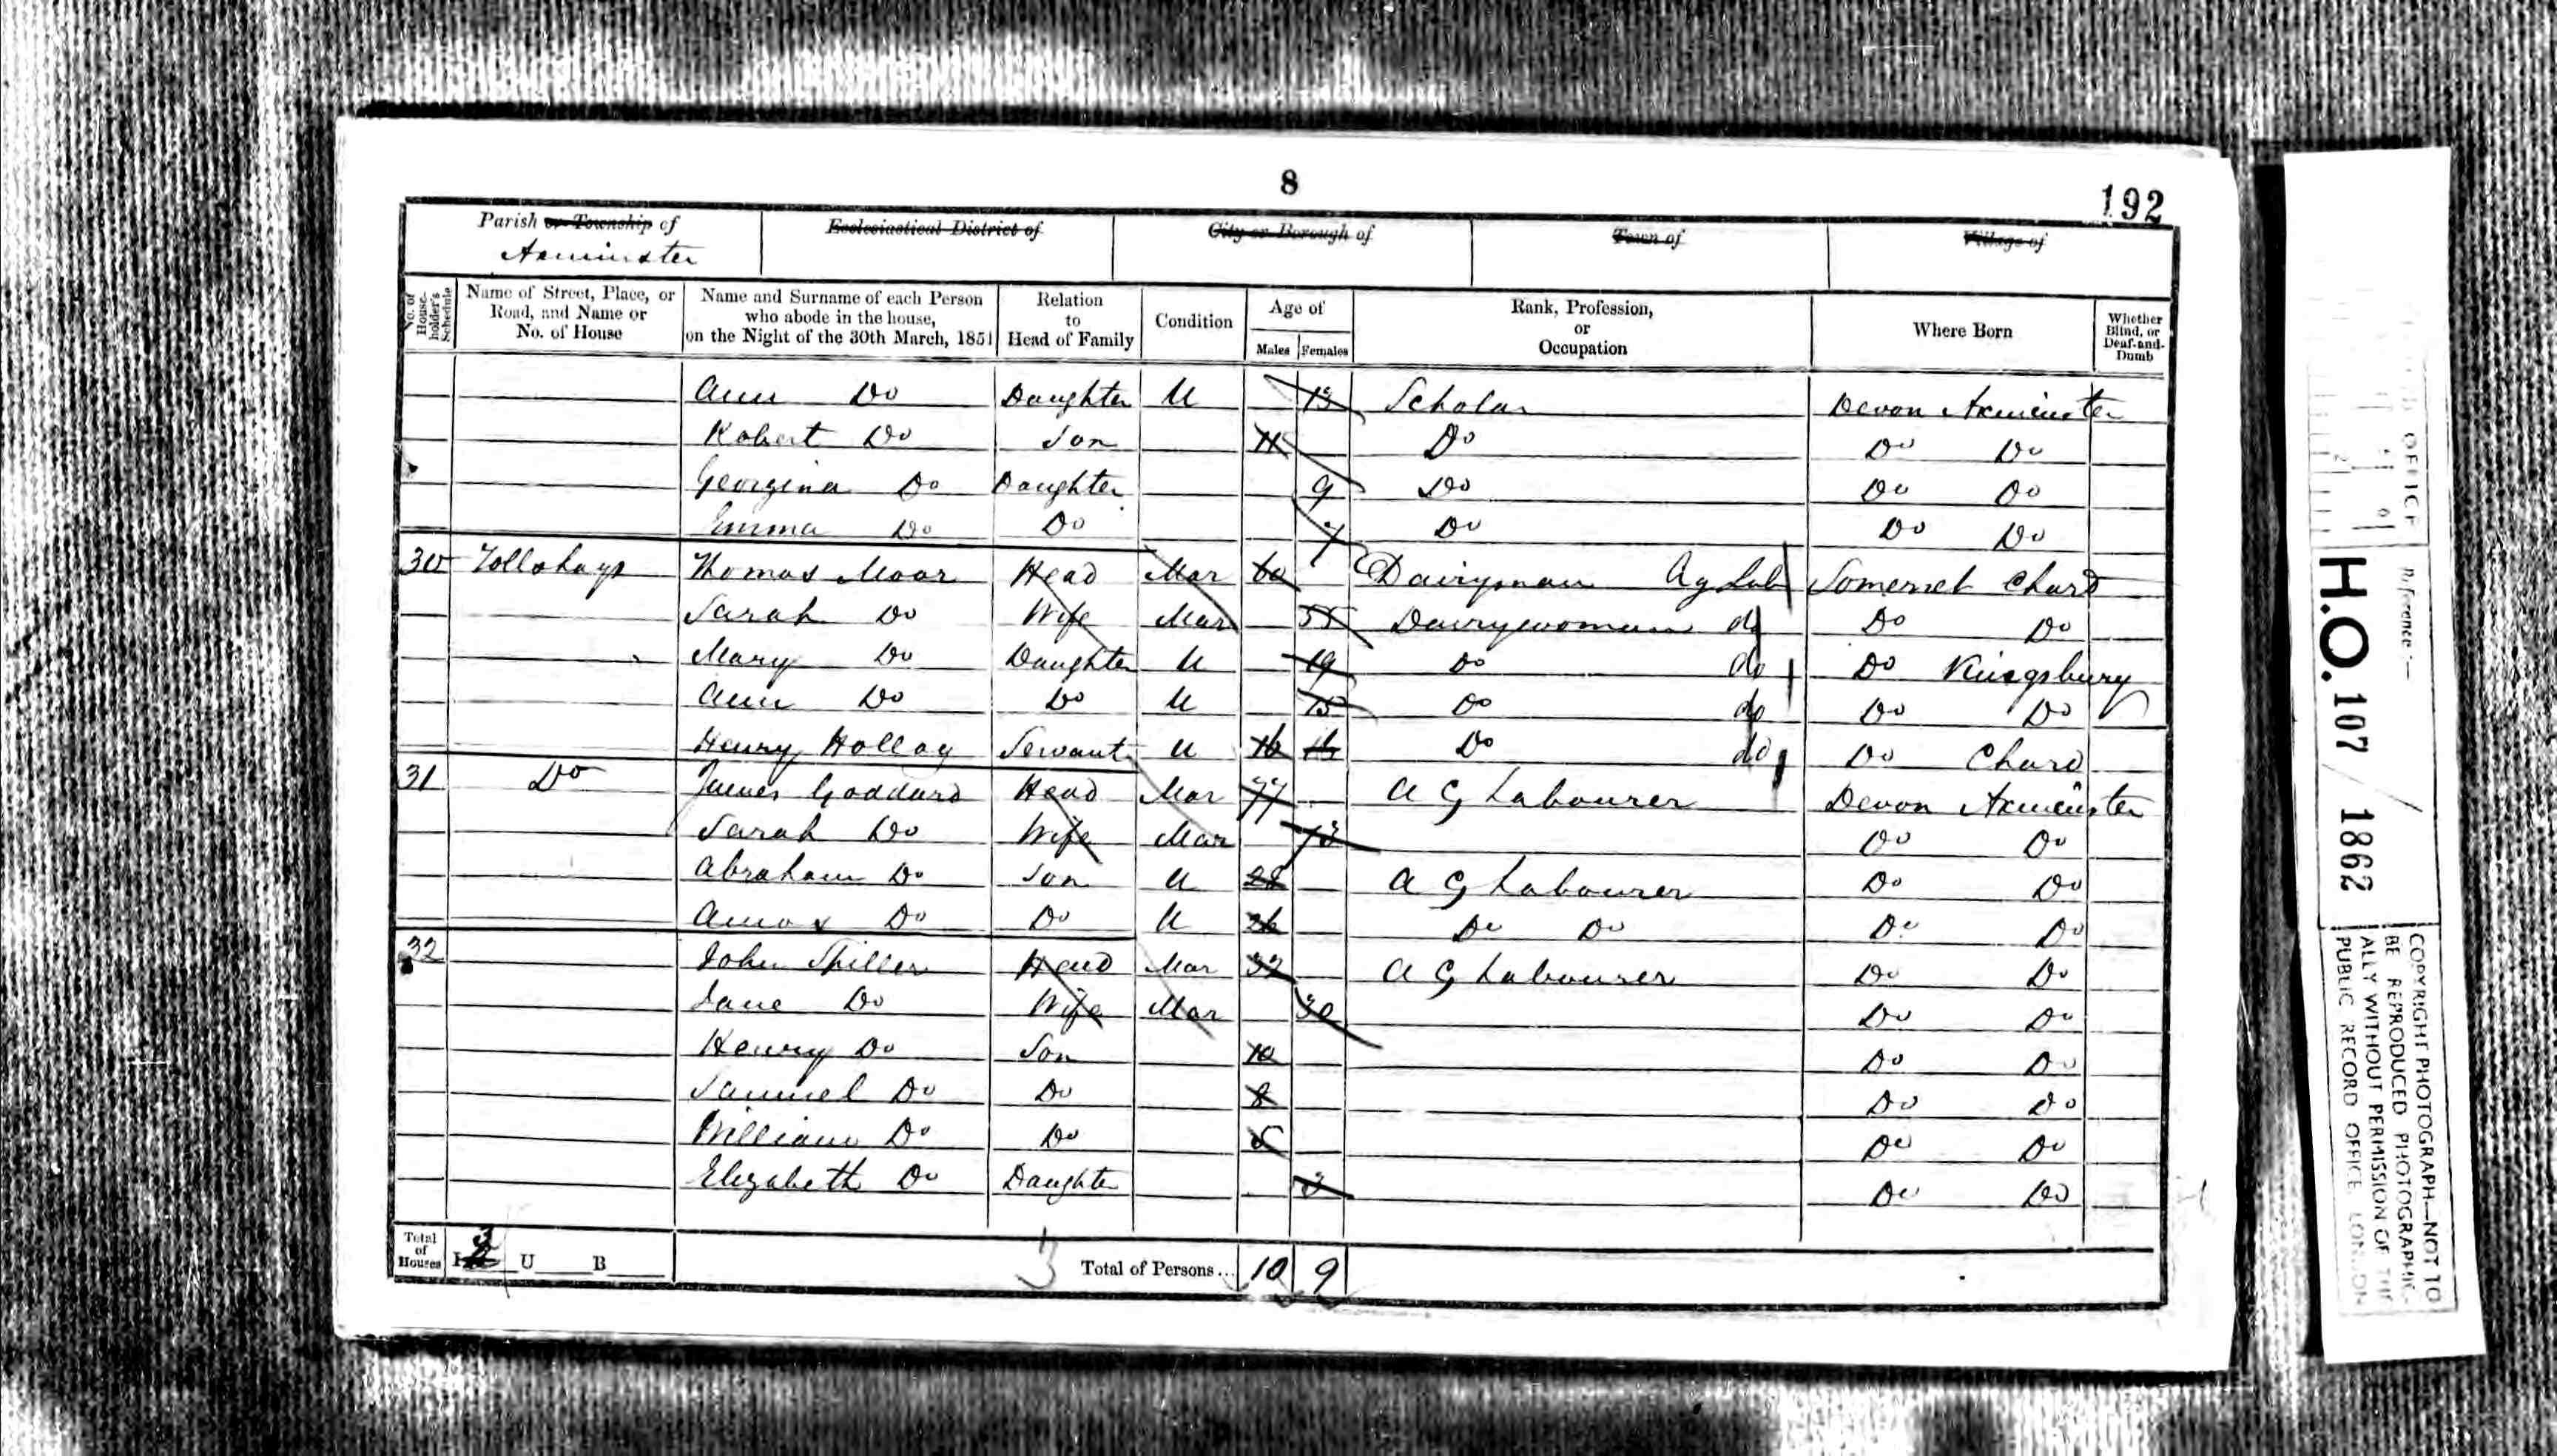 8
192
Parish or Township of
Axminster
Ecclesiastical District of
City or Borough of
Town of
Village of
No. of Householder's Schedule
Name of Street, Place, or Road, and Name or No. of House
Name and Surname of each Person who abode in the house, on the Night of the 30th March, 1851
Relation to Head of Family
Condition
Age of
Males
Females
Rank, Profession, or Occupation
Where Born
Whether Blind, or Deaf-and-Dumb
Ann Do Daughter U 13 Scholar Devon Axminster
Robert Do Son 11 Do Do Do
Georgina Do Daughter 9 Do Do Do
Emma Do Do 7 Do Do Do
30 Thomas Moar Head Mar 60 Dairyman Ag Lab Somerset Chard
Sarah Do Wife Mar 55 Dairywoman do Do Do
Mary Do Daughter U 19 Do do Do Kingsbury
Ann Do Do U 15 Do do Do Do
Henry Servant U 16 Do do Do Chard
31 Do James Goddard Head Mar 77 A G Labourer Devon Axminster
Sarah Do Wife Mar 73 Do Do
Abraham Do Son U 28 A G Labourer Do Do
Amos Do Do U 26 Do Do Do Do
32 John Spiller Head Mar 32 A G Labourer Do Do
Jane Do Wife Mar 30 Do Do
Henry Do Son 10 Do Do
Samuel Do Do 8 Do Do
William Do Do 5 Do Do
Elizabeth Do Daughter 3 Do Do
Total of Houses I 3 U B
3
Total of Persons... 10 9
OFFICE
Reference:—
H.O. 107 / 1862
COPYRIGHT PHOTOGRAPH—NOT TO
BE REPRODUCED PHOTOGRAPHIC-
ALLY WITHOUT PERMISSION OF THE
PUBLIC RECORD OFFICE, LONDON